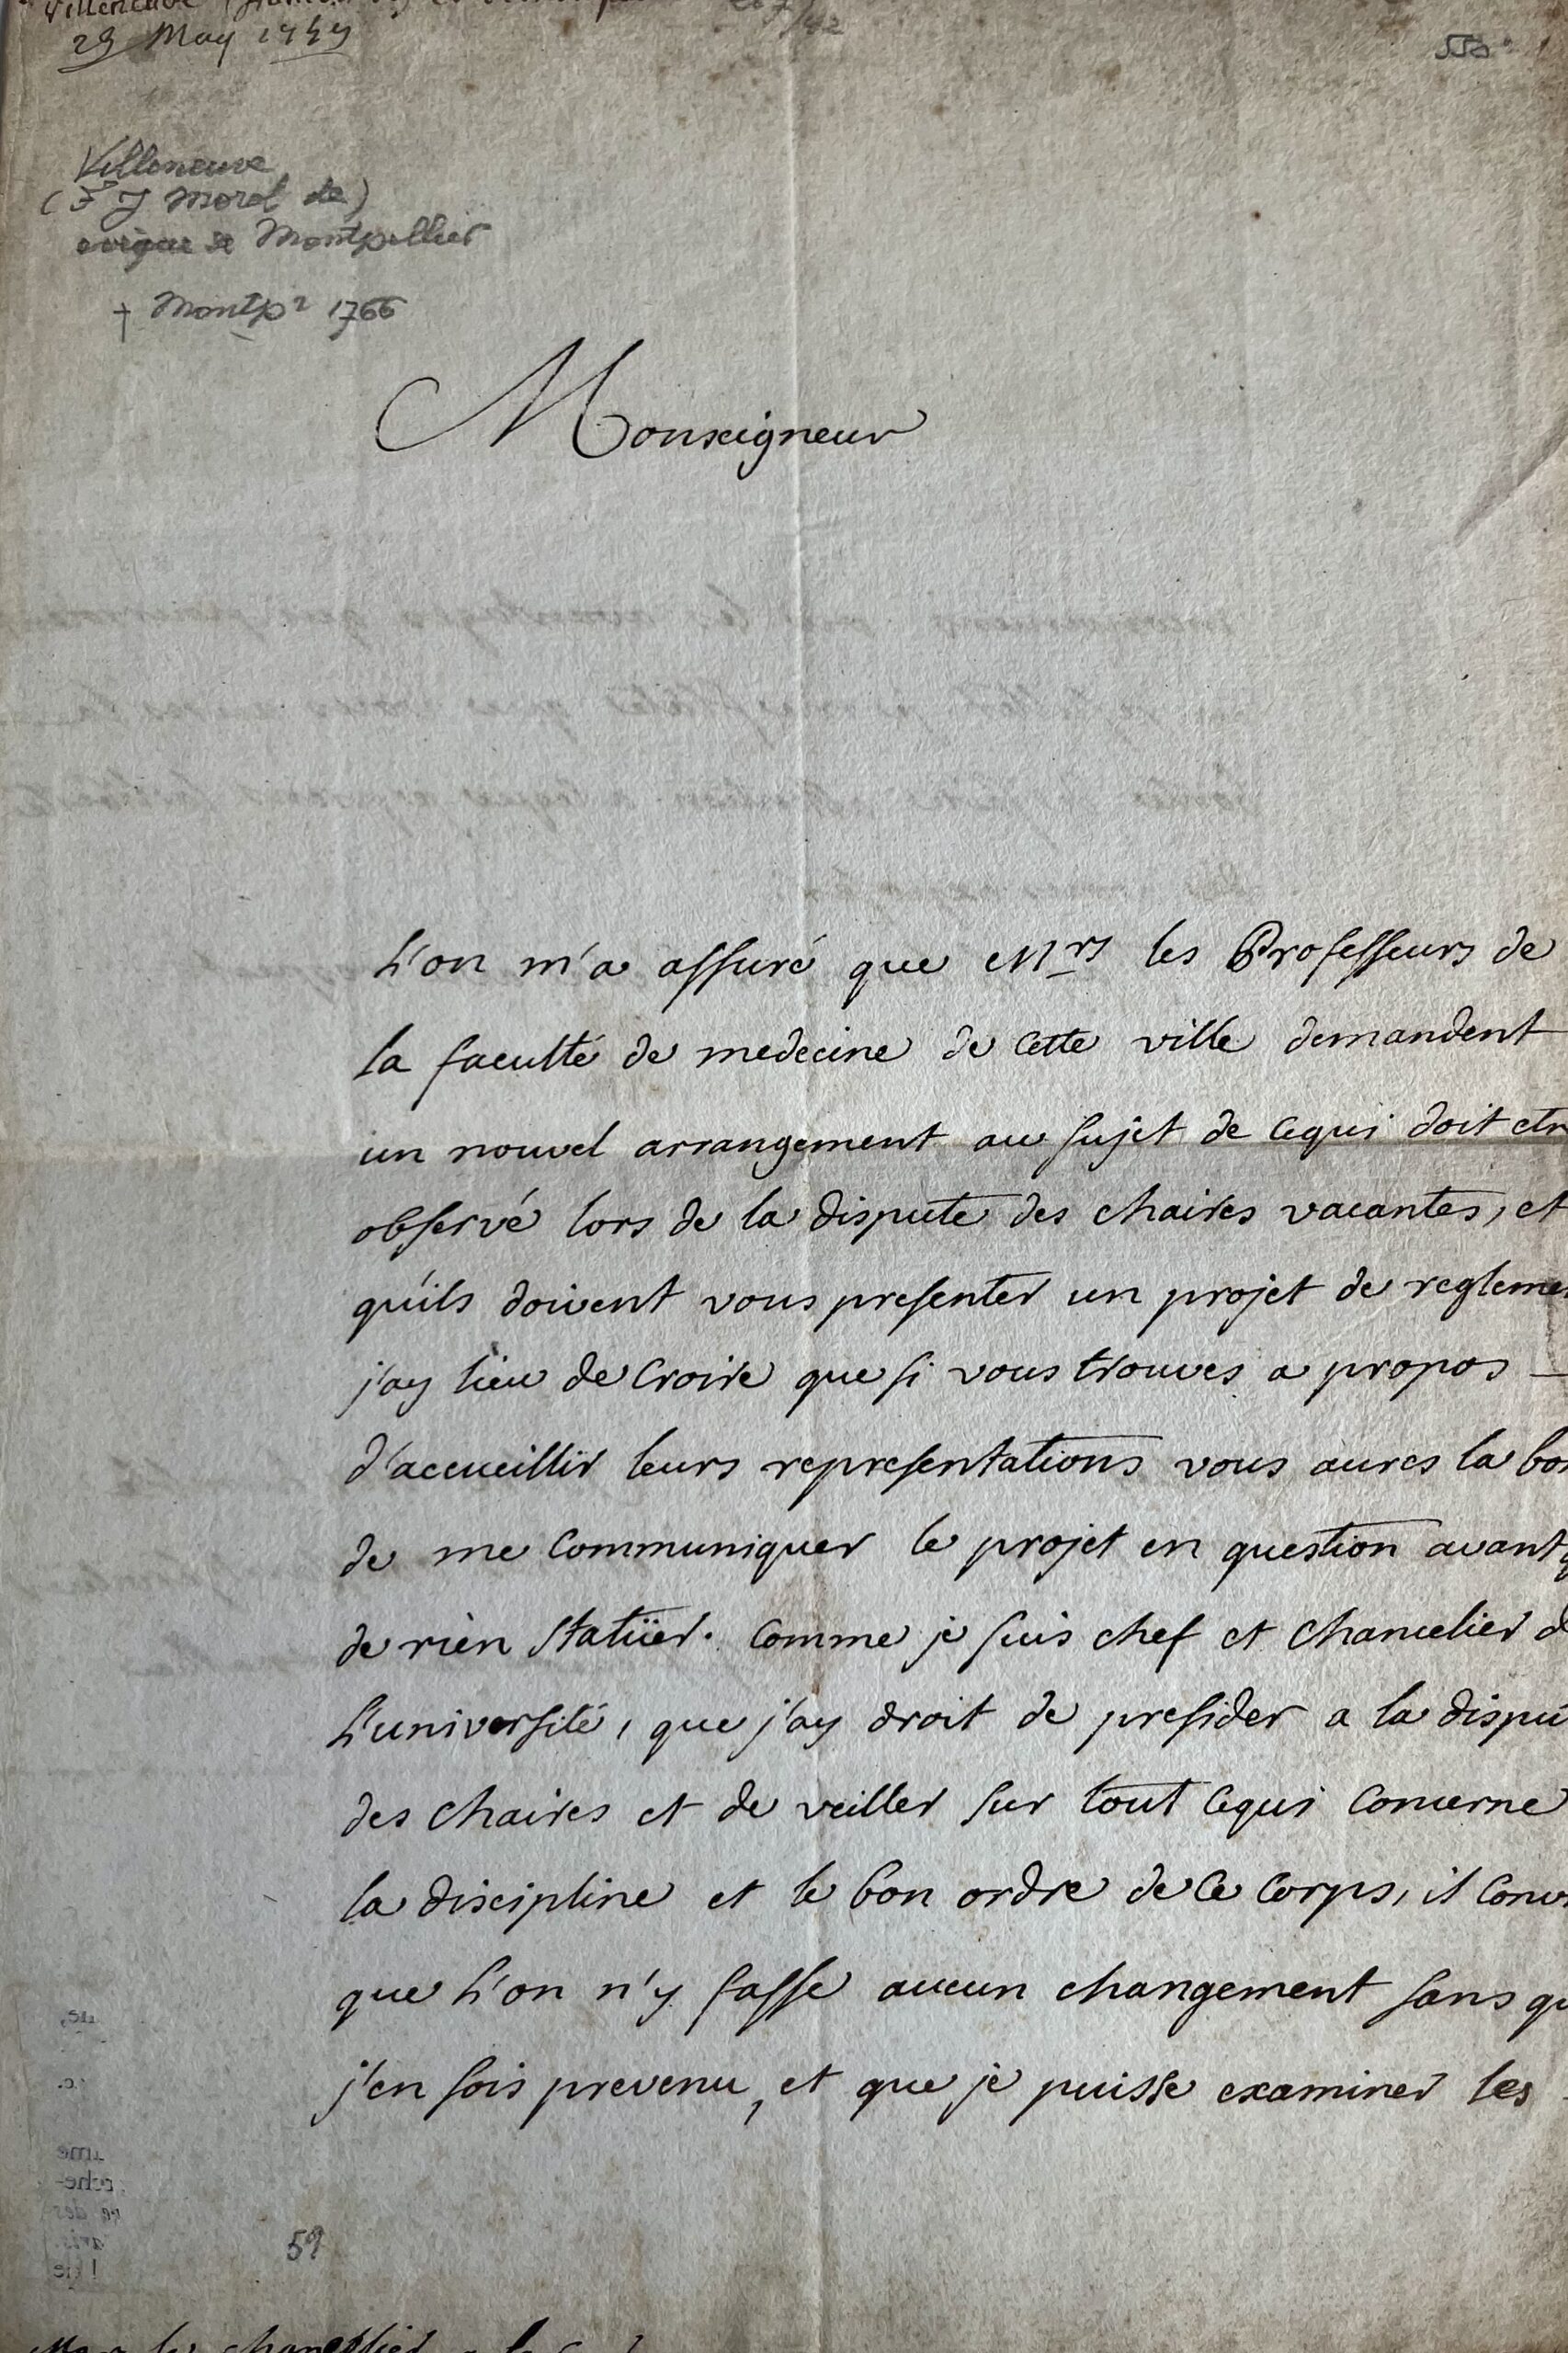 Villeneuve
29 May 1749
550
Villeneuve
(F J Morel de)
evêque de Montpellier
† Montpr 1766
Monseigneur
L'on m'a assuré que Mrs les Professeurs de
la faculté de medecine de cette ville demandent
un nouvel arrangement au sujet de cequi doit etr
observé lors de la dispute des chaires vacantes, et
qu'ils doivent vous presenter un projet de regleme
j'ay lieu de croire que si vous trouves a propos
d'accueillir leurs representations vous aures la bo
de me communiquer le projet en question avant q
de rien statüer. comme je suis chef et chancelier d
L'université, que j'ay droit de presider a la dispu
des chaires et de veiller sur tout cequi concerne
la discipline et le bon ordre de ce corps, il conv
que L'on n'y fasse aucun changement sans qu
j'en sois prevenu, et que je puisse examiner les
59
chancelier